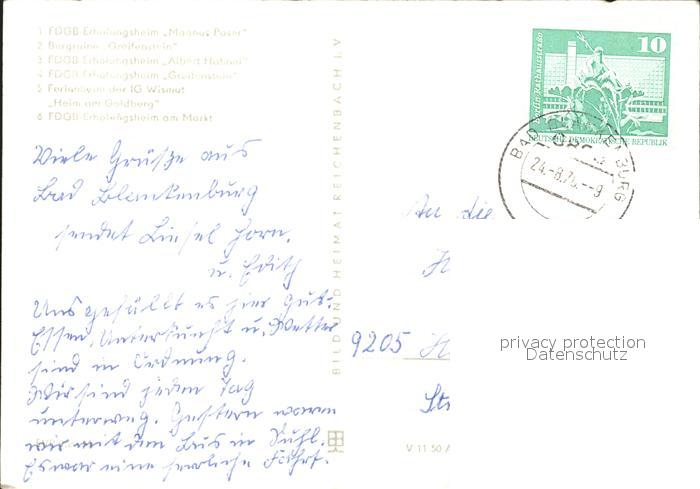 1 FDGB Erholungsheim „Magnus Poser“
2 Burgruine „Greifenstein“
3 FDGB Erholungsheim „Albert Hähnel“
4 FDGB Erholungsheim „Greifenstein“
5 Ferienheim der IG Wismut
„Heim am Goldberg“
6 FDGB Erholungsheim am Markt
Viele Grüße aus
Bad Blankenburg
sendet Liesel Horn.
u. Edith
Uns gefällt es hier gut.
Essen, Unterkunft u. Wetter
sind in Ordnung.
Wir sind jeden Tag
unterweg. Gestern waren
wir mit dem Bus in Suhl.
Es war eine herrliche Fahrt.
BILD UND HEIMAT REICHENBACH I.V
V 11 50 A
Berlin Rathausstraße
10
DEUTSCHE DEMOKRATISCHE REPUBLIK
BAD BURG
24.-8.76.--9
An die
H
9205 H
Str
privacy protection
Datenschutz